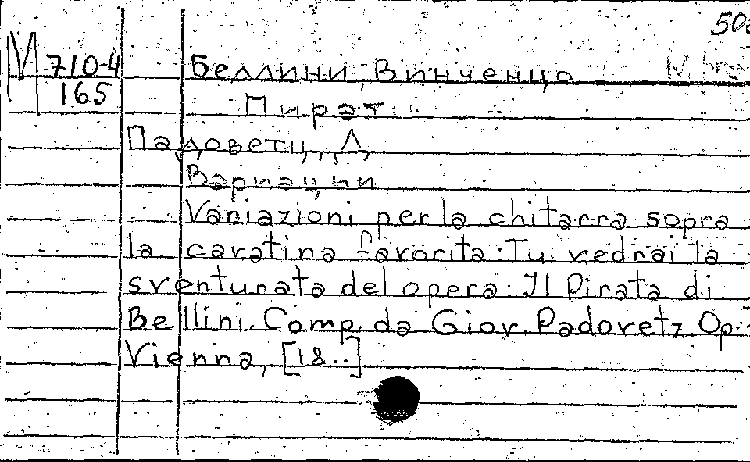 М 710-4
165
Беллини, Винченцо
Пират.
Падоветц, Д.
Вариации
Variazioni per la chitarra sopra
la cavatina favorita: Tu vedrai la
sventurata del opera: Il Pirata di
Bellini. Comp. da Giov. Padovetz Op.
Vienna, [18..]